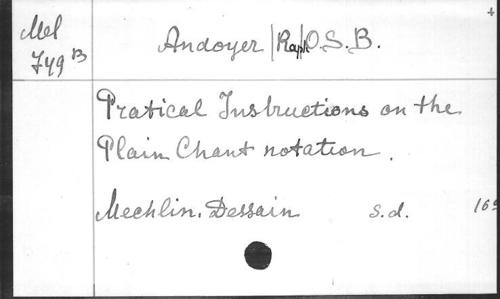 4
Mel Andoyer (Raph) O.S.B.
749 B
Pratical Instructions on the
Plain Chant notation.
Mechlin. Dessain s.d. 16